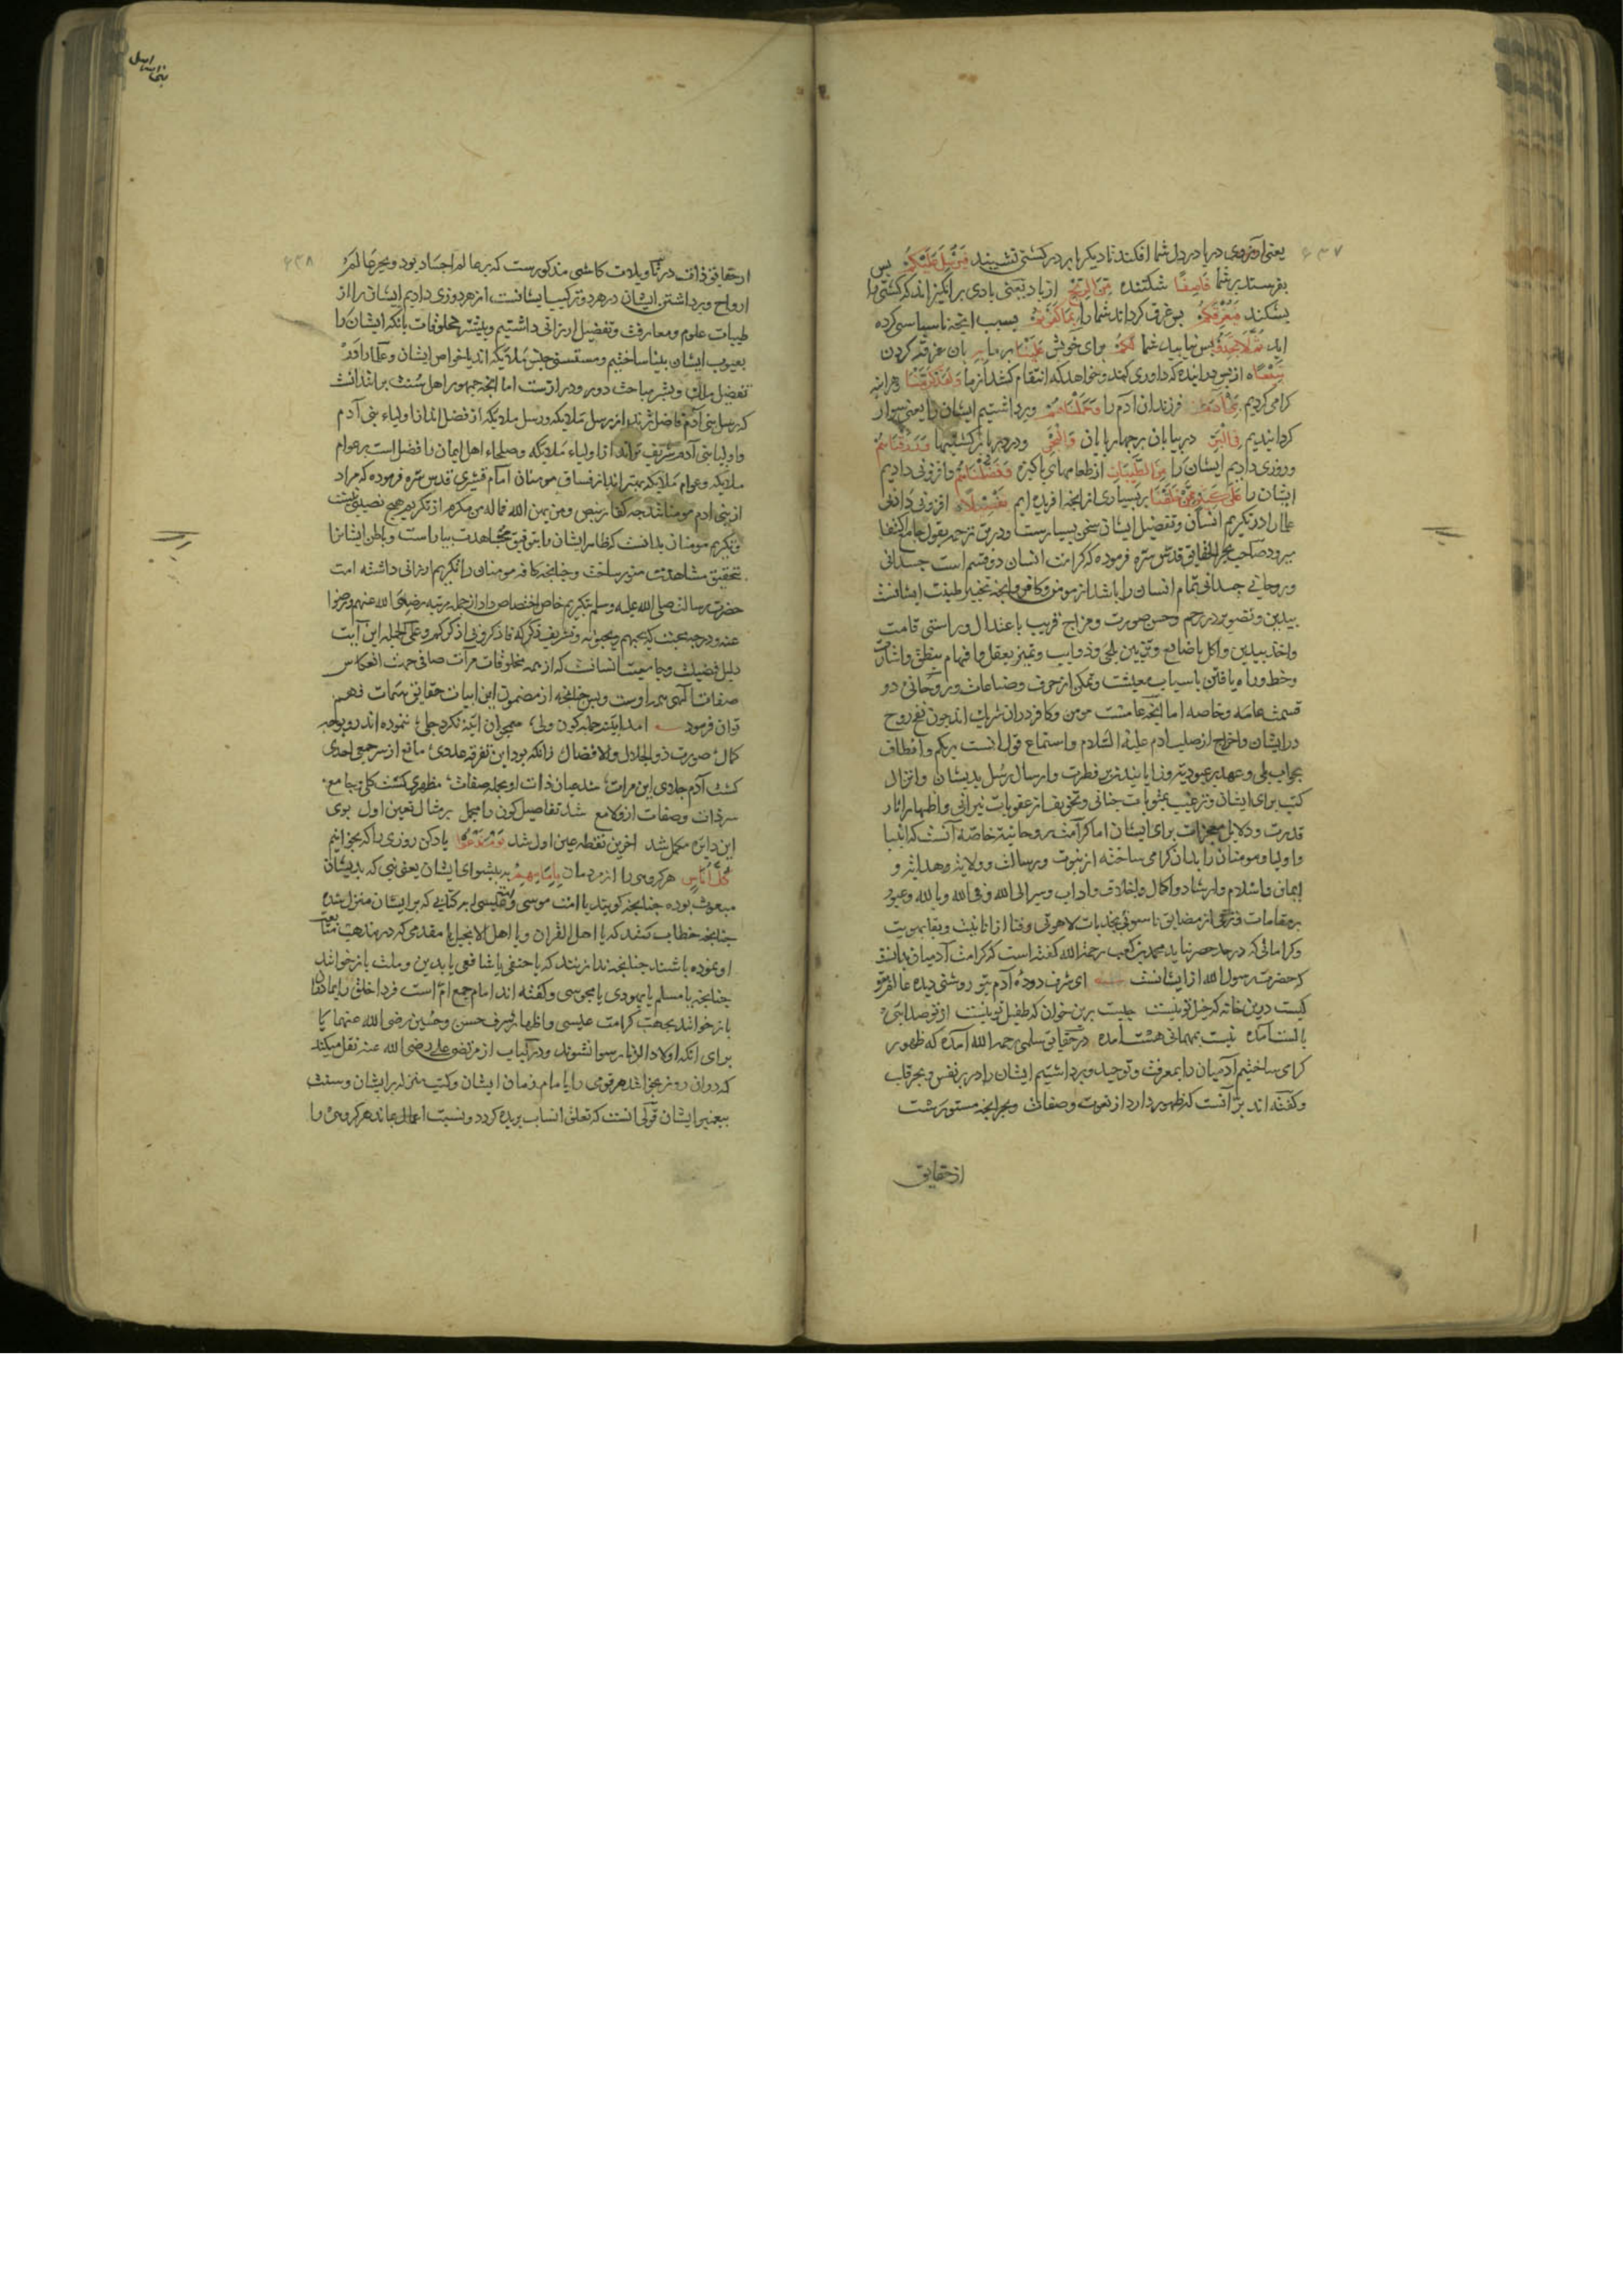 ۶۳۷
یعنی آرزوی دریا در دل شما افکند تا دیگر بار در کشتی نشینید فیرسل علیکم پس
بفرستد بر شما قاصفا شکننده من الریح از باد یعنی بادی برانگیزاند که کشتی را
بشکند فیغرقکم پس غرق گرداند شما را بما کفرتم بسبب آنچه ناسپاسی کرده
اید ثم لا تجدوا پس نیابید شما لکم برای خویش علینا بر ما به بآن غرقه کردن
تبیعاه از پس آینده که داوری کند و خواهد که انتقام کشد از ما ولقد کرمنا و هر آینه
گرامی کردیم بنی آدم فرزندان آدم را وحملناهم و برداشتیم ایشان را یعنی سوار
گردانیدیم فی البر در بیابان بر چهارپایان والبحر و در دریا بر کشتیها ورزقناهم
و روزی دادیم ایشان را من الطیبات از طعامهای پاکیزه وفضلناهم و افزونی دادیم
ایشان را علی کثیر ممن خلقنا بر بسیاری از آنچه آفریده ایم تفضیلاه افزونی دادنی
علما را در تکریم انسان و تفضیل ایشان سخن بسیارست و درین ترجمه بقول جامع اکتفا
میرود صاحب بحر الحقایق قدس سره فرموده که کرامت انسان دو قسم است جسدانی
و روحانی جسدانی تمام انسان را باشد از مومن و کافر و آنچه تخمیر طینت ایشانست
بیدین و تصویر در رحم و حسن صورت و مزاج قریب باعتدال و راستی قامت
واخذ بیدین و اکل باصابع و تزیین بلحی و ذوایب و تمییز بعقل و افهام بنطق و اشارت
و خط و راه یافتن باسباب معیشت و تمکن از حرف و صناعات و روحانی دو
قسمت عامه و خاصه اما آنچه عامست مومن و کافر در آن شریک اند چون نفخ روح
در ایشان و اخراج از صلب آدم علیه السلام و استماع قول الست بربکم و انطاق
بجواب بلی و عهد بر عبودیت و زایانیدن بر فطرت و ارسال رسل بدیشان و انزال
کتب برای ایشان و ترغیب بمثوبات جنانی و تخویف از عقوبات نیرانی و اظهار آثار
قدرت و دلایل معجزات برای ایشان اما کرامت روحانیه خاصه آنست که انبیا
و اولیا و مومنان را بدان گرامی ساخته از نبوت و رسالت و ولایت و هدایت و
ایمان و اسلام و ارشاد و اکمال و اخلاق و آداب و سیر الی الله و فی الله و بالله و عبور
بر مقامات و ترقی از مضایق ناسوتی بجذبات لاهوتی و فنا از انانیت و بقا بهویت
و کراماتی که در حد حصر نیاید محمد بن کعب رحمه الله گفته است که کرامت آدمیان بدانست
که حضرت رسول الله از ایشانست ای شرف دوده آدم بتو روشنی دیده عالم بتو
کیست درین خانه که خیل تو نیست چیست برین خوان که طفیل تو نیست از تو صدایی
بالست آمده نیست بمهمانی هست آمده در حقایق سلمی رحمه الله آمده که ظهور
گرامی ساختیم آدمیان را بمعرفت و توحید و برداشتیم ایشان را در بر نفس و بحر قلب
و گفته اند بر آنست که ظهور دارد از نعوت و صفات و بحر آنچه مستورست
از حقایق
۶۳۸
از حقایق ذات در تاویلات کاشی مذکورست که بر عالم اجساد بود و بحر عالم
ارواح و برداشتن ایشان در هر دو ترکیب ایشانست از هر دو روزی دادیم ایشان را از
طیبات علوم و معارف و تفضیل ارزانی داشتیم و بیشتر مخلوقات بآنکه ایشان را
بعیوب ایشان بینا ساختیم و مستثنی جنس ملایکه اند یا خواص ایشان و علما را در
تفضیل ملک و بشر مباحث دور و درازست اما آنچه جمهور اهل سنت برانند آنست
که رسل بنی آدم فاضل ترند از رسل ملایکه و رسل ملایکه از فضل اند از اولیاء بنی آدم
و اولیا بنی آدم شریف تراند از اولیاء ملایکه و صلحاء اهل ایمان را فضل است بر عوام
ملایکه و عوام ملایکه بهتراند از فساق مومنان امام قشیری قدس سره فرموده که مراد
از بنی آدم مومنانند چه کفار بنص ومن یهن الله فما له من مکرم از تکریم هیچ نصیبی نیست
و تکریم مومنان بدانست که ظاهر ایشان را بتوفیق مجاهدت بیاراست و باطن ایشانرا
بتحقیق مشاهدت منور ساخت و چنانچه کافه مومنان را تکریم ارزانی داشته امت
حضرت رسالت صلی الله علیه وسلم بتکریم خاص اختصاص داد از جمله مرتبه رضی الله عنهم ورضوا
عنه و درجه محبت که یحبهم ویحبونه و تشریف ذکر که فاذکرونی اذکرکم و علی الجمله این آیت
دلیل فضیلت و جامعیت انسانست که از همه مخلوقات مرآت صافی جهت انعکاس
صفات الهی همه اوست و بس چنانچه از مضمون این ابیات حقایق سمات فهم
توان فرمود آمد آینه جمله کون ولی همچو آن آینه نکرده جلی ننموده اند رو بوجه
کمال صورت ذو الجلال والافضال زانکه بود این تفرقه عددی مانع از سر جمعی احدی
گشت آدم جلای این مرآت شد عیان ذات او بجمله صفات مظهری گشت کلی و جامع
سر ذات و صفات ازو لامع شد تفاصیل کون را مجمل بر مثال تعین اول بوی
این دایره مکمل شد آخرین نقطه عین اول شد یوم ندعوا یاد کن روزی را که بخوانیم
کل اناس هر گروهی را از مردمان بامامهم به پیشوای ایشان یعنی نبی که بدیشان
مبعوث بوده چنانچه گویند یا امت موسی و عیسی ابر کتابی که بر ایشان منزل شده
چنانچه خطاب کنند که یا اهل القران و یا اهل الانجیل یا مقدمی که در مذهب متابعت
او نموده باشند چنانچه ندا زنند که یا حنفی یا شافعی یا بدین و ملت باز خوانند
چنانچه یا مسلم یا یهودی یا مجوسی و گفته اند امام جمع ام است فردا خلق را بمادران
باز خوانند بجهت کرامت عیسی و اظهار شرف حسن و حسین رضی الله عنهما یا
برای آنکه اولاد الزنا رسوا نشوند و در تبیان از مرتضی علی رضی الله عنه نقل میکند
که در آن روز بخوانند هر قومی را بامام زمان ایشان و کتب منزله بر ایشان و سنت
پیغمبر ایشان قولی آنست که تعلق انساب بریده گردد و نسبت اعمال بماند هر گروهی را